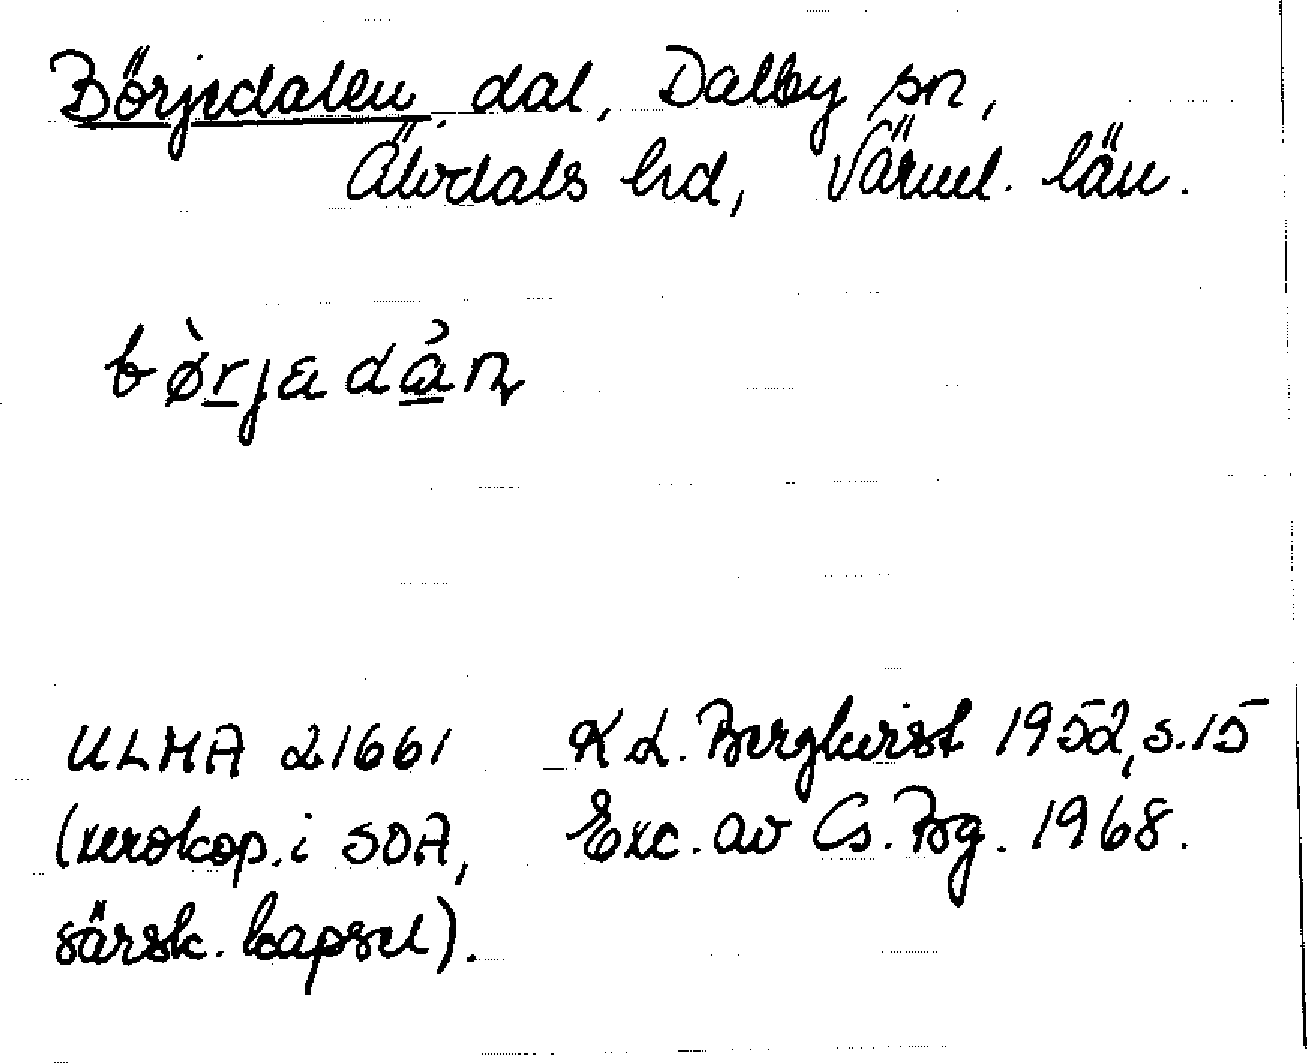 Börjedalen dal, Dalby sn,
Älvdals hd, Värml. län.
bø̀rjadån
ULMA 21661 K L. Bergkvist 1952, s.15
(xerokop. i SOA, Exc. av Cs. Bg. 1968.
särsk. kapsel).